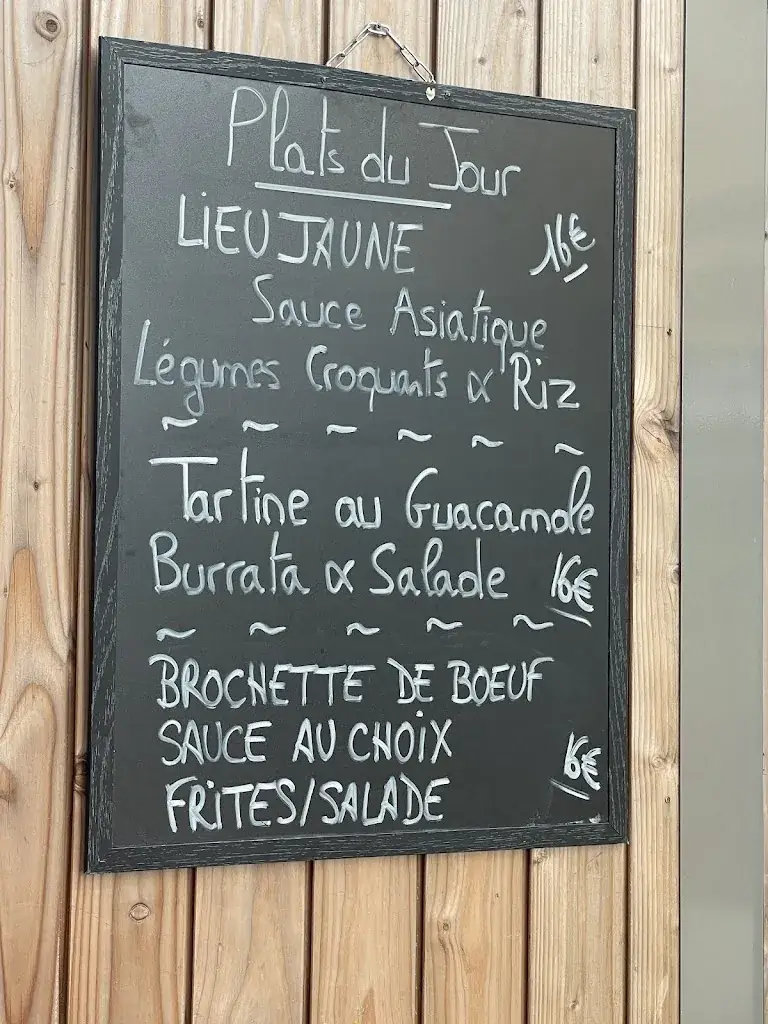 Plats du Jour
LIEU JAUNE 16€
Sauce Asiatique
Légumes Croquants & Riz
~ ~ ~ ~ ~ ~
Tartine au Guacamole
Burrata & Salade 16€
~ ~ ~ ~ ~
BROCHETTE DE BOEUF
SAUCE AU CHOIX 16€
FRITES/SALADE